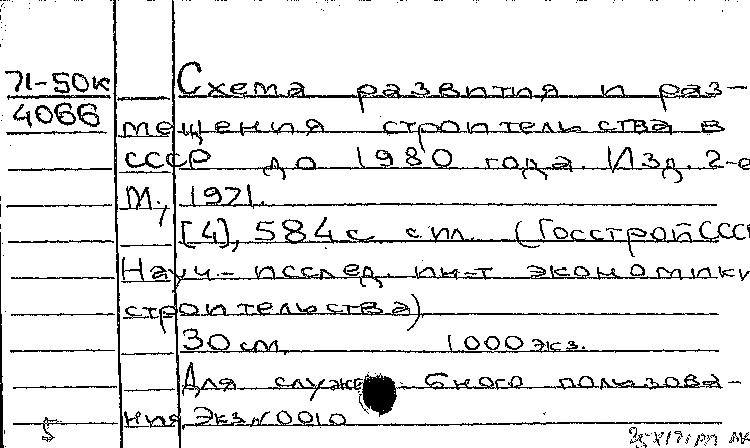 71-50к Схема развития и раз-
4066 мещения строительства в
СССР до 1980 года. Изд. 2-е
М., 1971.
[4], 584 с. с ил. (Госстрой СССР
Науч.-исслед. ин-т экономики
строительства)
30 см. 1000 экз.
Для служебного пользова-
ния. Экз N 0010
5